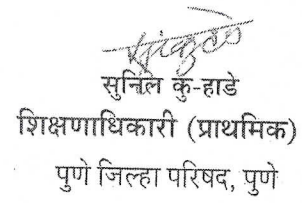 सुनिल कु-हाडे
शिक्षणाधिकारी (प्राथमिक)
पुणे जिल्हा परिषद, पुणे